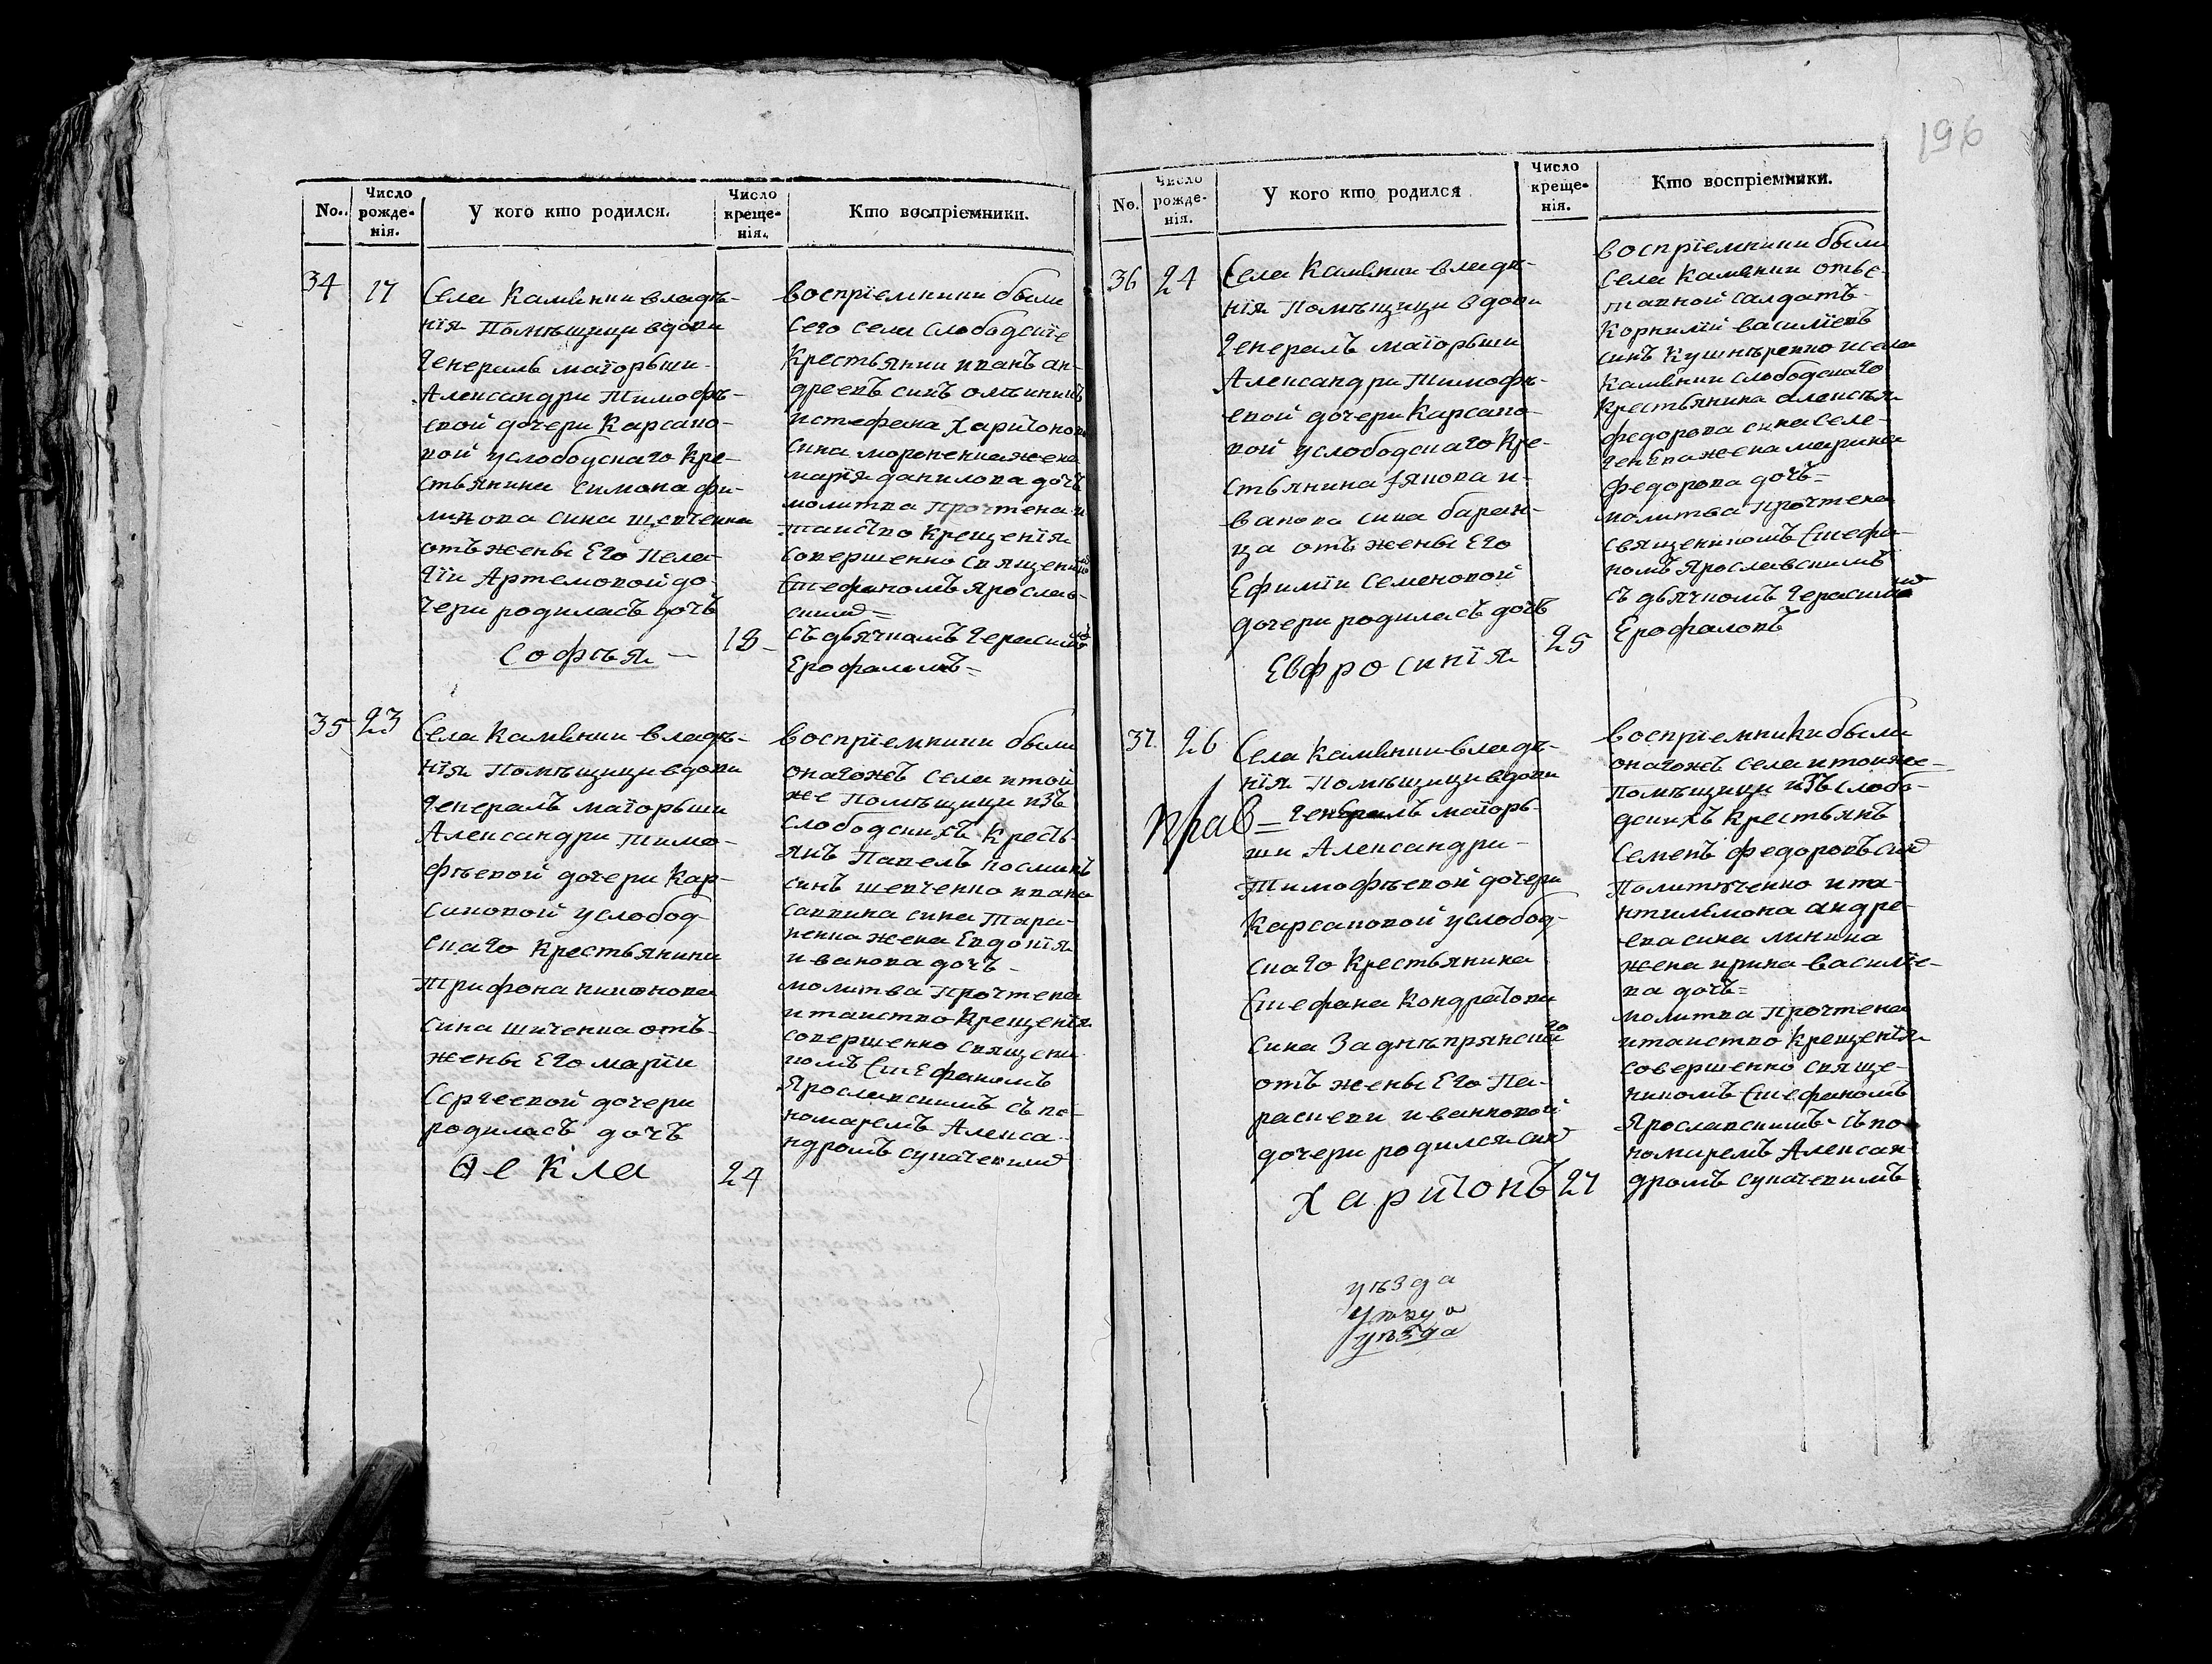 196
No. Число рожде-нія. У кого кто родился. Число креще-нія. Кто воспріемники.
34 17
Села Каменки владѣ-
нія Помѣщици вдови
Генералъ маіорьши
Александри Тимофѣ-
евой дочери Карсано-
вой услободскаго Кре-
стьянина Симона фи-
липова сина шевченка
отъ жены Его Пела-
гіи Артемовой до-
чери родиласъ дочъ
Софѣя 18
воспріемники были
сего села слободскіе
Крестьянин иванъ ан-
дреевъ синъ
истефана Харитонова
сина мороненка жена
марія данилова дочъ
молитва прочтена и
таинство Крещенія
совершенно священикомъ
Стефаномъ Ярослав-
скимъ
съ дьячкомъ Герасимомъ
35 23
Села Каменки владѣ-
нія Помѣщици вдови
Генералъ маіорьши
Александри Тимо-
фѣевой дочери Кар-
сановой услобод-
скаго Крестьянина
Трифона никонова
сина шиченка отъ
жены Его маріи
Сергеевой дочери
родиласъ дочъ
Ѳекла 24
воспріемники были
онагожъ села итой
же Помѣщици изъ
слободскихъ Кресть-
янъ Павелъ
синъ шевченко ивана
саввина сина Тара-
ненка жена Евдокія
иванова дочъ
молитва прочтена
итаинство Крещенія
совершенно священи
комъ Стефаномъ
Ярославскимъ съ по-
номаремъ Алекса-
ндромъ сукачевимъ
No. Число рожде-нія. У кого кто родился Число креще-нія. Кто воспріемники.
36 24
Села Каменки владѣ-
нія Помѣщици вдови
Генералъ маіорьши
Александри Тимофѣ-
евой дочери Карсано-
вой услободскаго Кре-
стьянина якова и-
ванова сина баран-
ца отъ жены Его
Ефиміи Семеновой
дочери родиласъ дочъ
Евфросинія 25
воспріемники были
села Каменки отъс-
тавной салдатъ
Корнилій василіевъ
синъ Кушнѣренко исела
Каменки слободскаго
Крестьянина алексѣя
федорова сина селе-
женка жена марина
федорова дочъ
молитва прочтена
священикомъ Стефа-
номъ Ярославскимъ
съ дьячкомъ Герасимомъ
Ерофаловъ
37. 26
Села Каменки владѣ-
нія Помѣщици вдови
Генералъ маіорь-
ши Александри
Тимофѣевой дочери
Карсановой услобод-
скаго Крестьянина
Стефана Кондратова
сина Заднѣпрянскаго
отъ жены Его Па-
раскеви ивановой
дочери родился синъ
Харитонъ 27
воспріемники были
онагожъ села итоиже
помѣщици изъ слобо-
дскихъ Крестьянъ
Семенъ федоровъ синъ
Политученко ипа-
нтилимона андре-
ева сина минина
жена ирина василіе-
ва дочъ
молитва прочтена
итаинство Крещенія
совершенно свяще-
никомъ Стефаномъ
Ярославскимъ съ по-
номаремъ Алексан-
дромъ сукачевимъ
уѣзда
уѣзда
уѣзда